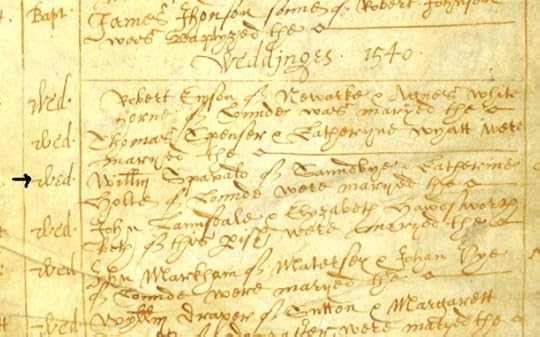 Bapt. James Jhonson sonne of Robert Johnson
was Baptyzed the
Weddinges . 1540.
Wed. Robert Eyson of Newarke & Agnes Whit
horne of Lounde was maryed the
Wed. Thomas Spenser & Katheryne Wyatt were
maryed the
Wed. Willm of Saundbye Catherine
of Lounde were maryed the
Wed. John Lamsdale & Elyzabeth
both of this were maryed the
Wed John Markham of Matersey & Johan Pye
of Lounde were maryed the
Wed Wyllm Draper of Sutton & Margarett
were maryed the